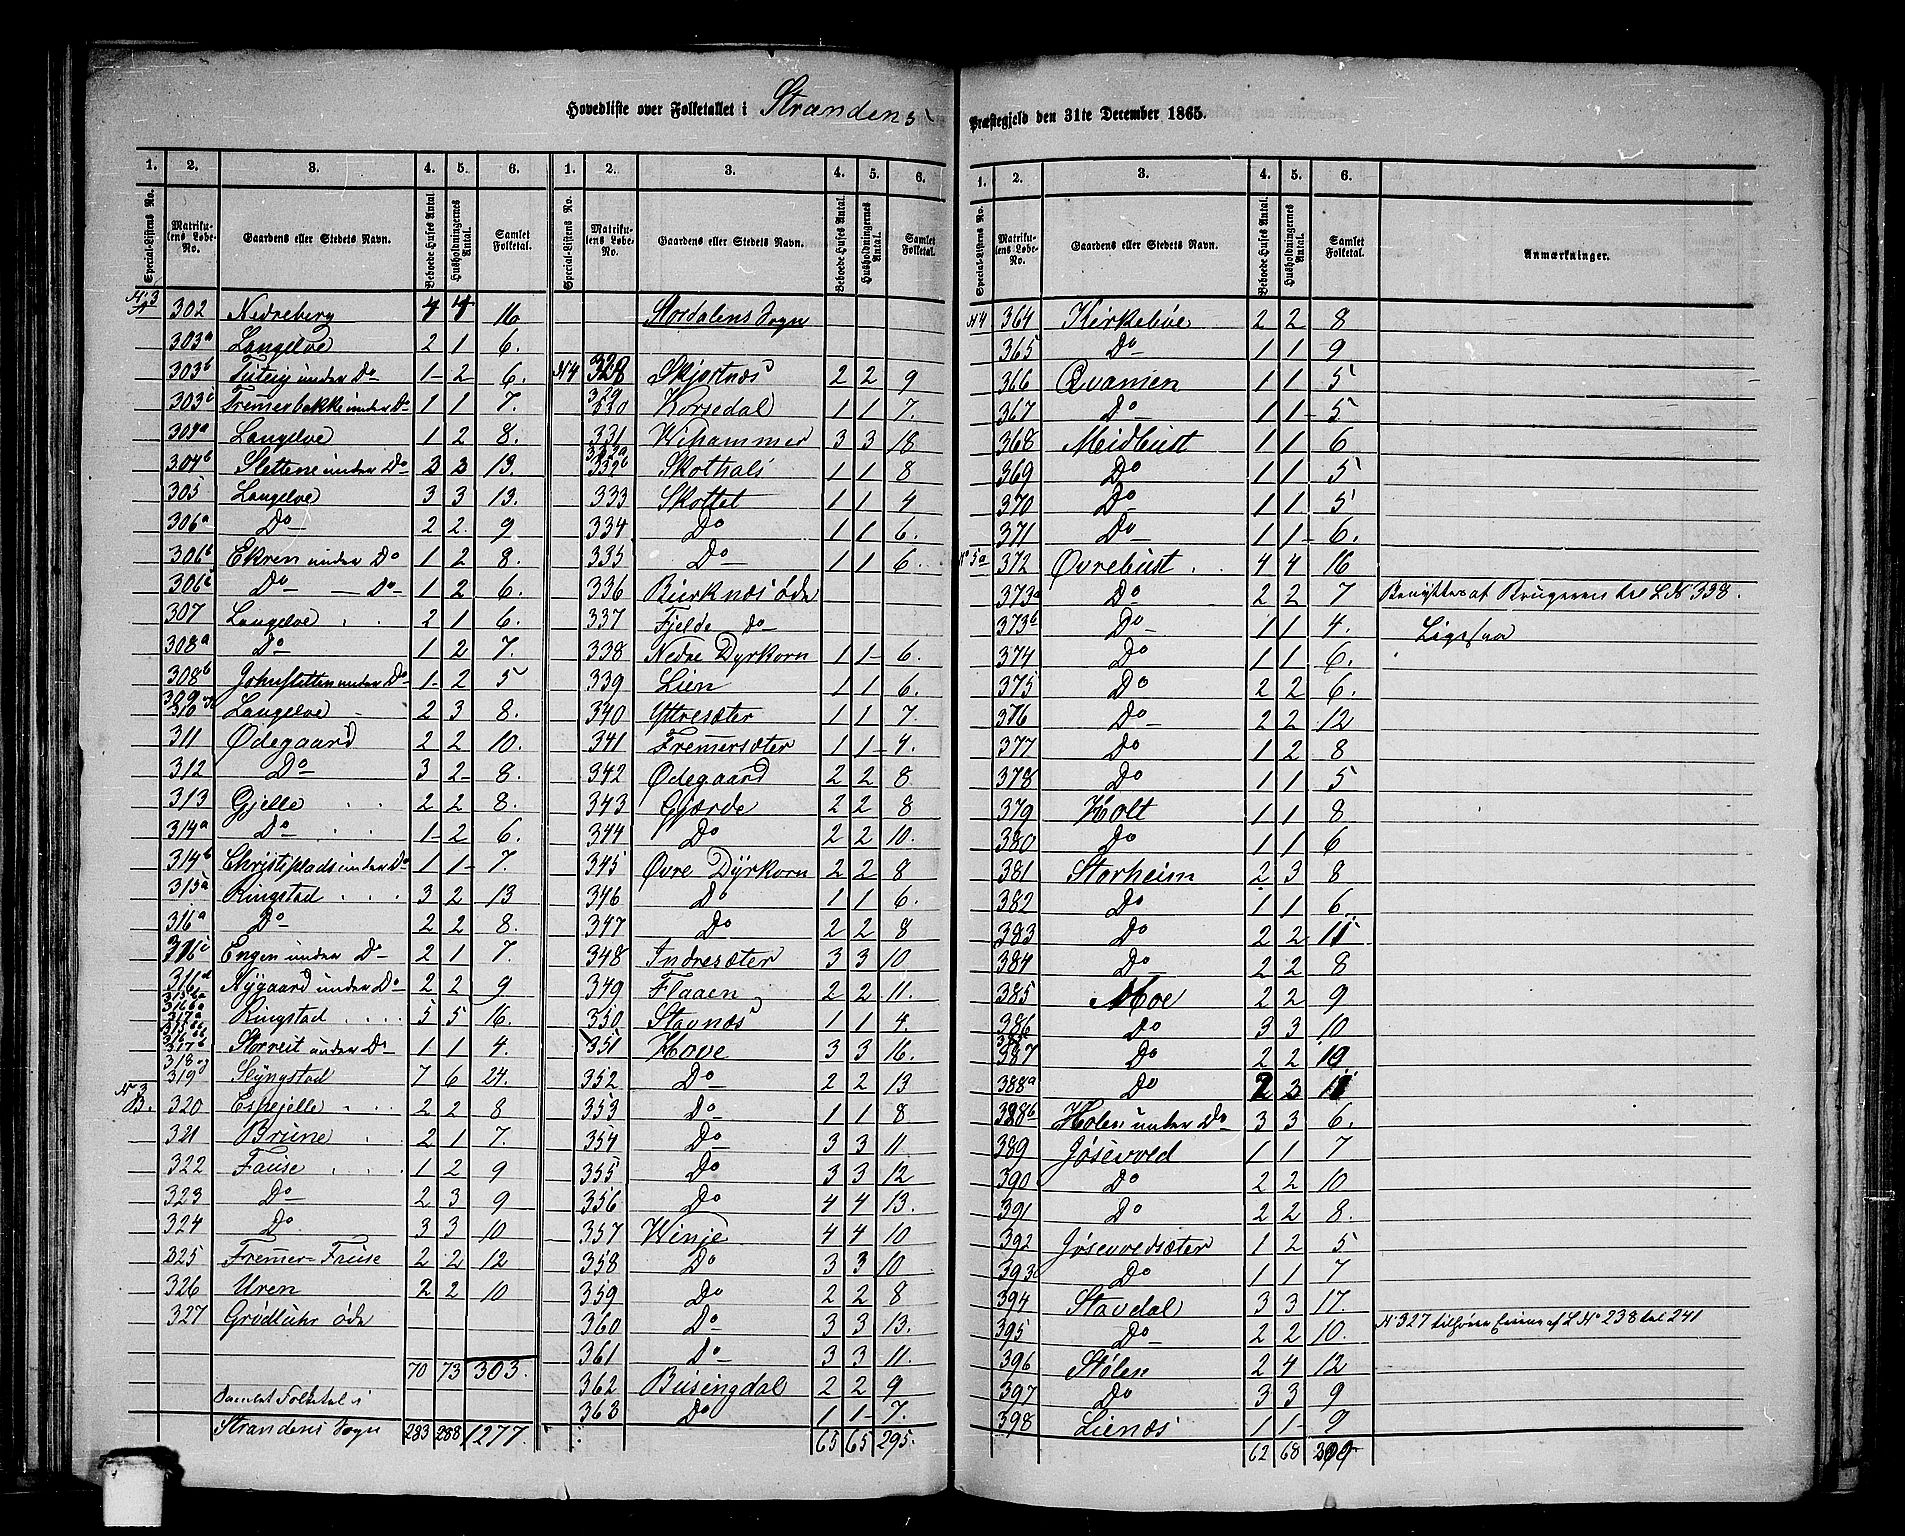 Hovedliste over Folketallet i Strandens
1. 2. 3. 4. 5. 6. 1. 2. 3. 4. 5. 6.
Special-Listens No. Matrikulens Løbe-No. Gaardens eller Stedets Navn. Beboede Huses Antal Husholdningernes Antal. Samlet Folketal. Special-Listens No. Matrikulens Løbe-No. Gaardens eller Stedets Navn. Beboede Huses Antal. Husholdningernes Antal. Samlet Folketal.
No 3 A 302 Nedreberg 4 4 16
303a Langelve 2 1 6.
303b under Do 1 2 6.
303c Fremerbakke under Do 1 1 7.
304a Langelve 1 2 8.
304b Slettene under Do 3 3 13.
305 Langelve 3 3 13.
306a Do 2 2 9
306b Ekren under Do 1 2 8.
306c Do Do 1 2 6.
307 Langelve 2 1 6.
308a Do 1 2 7.
308b Johnsletten under Do 1 2 5
309 og 310 Langelve 2 3 8.
311 Ødegaard 2 2 10.
312 Do 3 2 8.
313 Gjelle 2 2 8.
314a Do 1 2 6.
314b Christiplads under Do 1 1 7.
315a Ringstad 3 2 13
316a Do 2 2 8.
316c Engen under Do 2 1 7.
316d Nygaard under Do 2 2 9
Ringstad 5 5 16.
Storreit under Do 1 1 4.
318 og 319 Slyngstad 7 6 24.
No 3 B. 320 Espejelle 2 2 8
321 Brune 2 1 7.
322 Fause 1 2 9
323 Do 2 3 9
324 Do 3 3 10
325 Fremer-Fause 2 2 12
326 Uren 2 2 10
327 Grødluhr øde
70 73 303.
Samlet Folketal i
Strandens Sogn 283 288 1277.
Stordalens Sogn
N 4 328 Skjortnæs 2 2 9
329 330 Korsedal 1 1 7.
331 Wihammer 3 3 18
332a 332b Skothals 1 1 8
333 Skottet 1 1 4
334 Do 1 1 6.
335 Do 1 1 6.
336 Burknæs øde
337 Fjelde Do
338 Nedre Dyrkorn 1 1 6.
339 Lien 1 1 6.
340 Yttresæter 1 1 7.
341 Fremersæter 1 1 4.
342 Ødegaard 2 2 8
343 Gjærde 2 2 8
344 Do 2 2 10.
345 Øvre Dyrkorn 2 2 8
346 Do 1 1 6.
347 Do 2 2 8
348 Indresæter 3 3 10
349 Flaaen 2 2 11.
350 Stavnæs 1 1 4.
351 Hove 3 3 16.
352 Do 2 2 13
353 Do 1 1 8
354 Do 3 3 11.
355 Do 3 3 12
356 Do 4 4 13.
357 Winje 4 4 10
358 Do 3 3 10
359 Do 2 2 8
360 Do 3 3 13.
361 Do 3 3 11.
362 Busingdal 2 2 9
363 Do 1 1 7.
65 65 295.
Præstegjeld den 31te December 1865.
1. 2. 3. 4. 5. 6.
Special-Listens No. Matrikulens Løbe-No. Gaardens eller Stedets Navn. Beboede Huses Antal. Husholdningernes Antal. Samlet Folketal. Anmærkninger.
N 4 364 Kirkebøe 2 2 8
365 Do 1 1 9
366 Qvamen 1 1 5
367 Do 1 1 5
368 Meidbust 1 1 6
369 Do 1 1 5
370 Do 1 1 5
371 Do 1 1 6.
No 5a 372 Øvrebust 4 4 16
373a Do 2 2 7 Benyttes af Brugeren til L N 338.
373b Do 1 1 4. Ligesaa
374 Do 1 1 6.
375 Do 2 2 6.
376 Do 2 2 12
377 Do 1 2 8
378 Do 1 1 5
379 Holt 1 1 8
380 Do 1 1 6
381 Storheim 2 3 8
382 Do 1 1 6
383 Do 2 2 11
384 Do 2 2 8
385 Moe 2 2 9
386 Do 3 3 10
387 Do 2 2 10
388a Do 2 3 11
388b Holen under Do 3 3 6.
389 Jøsevved 1 1 7
390 Do 2 2 10
391 Do 2 2 8.
392 Jøsevvedsæter 1 2 5
393 Do 1 1 7
394 Stavdal 3 3 17.
395 Do 2 2 10. No 327 tilhører Eierne af L No 238 til 241
396 Stølen 2 4 12
397 Do 3 3 9
398 Lienæs 1 1 9
62 68 299